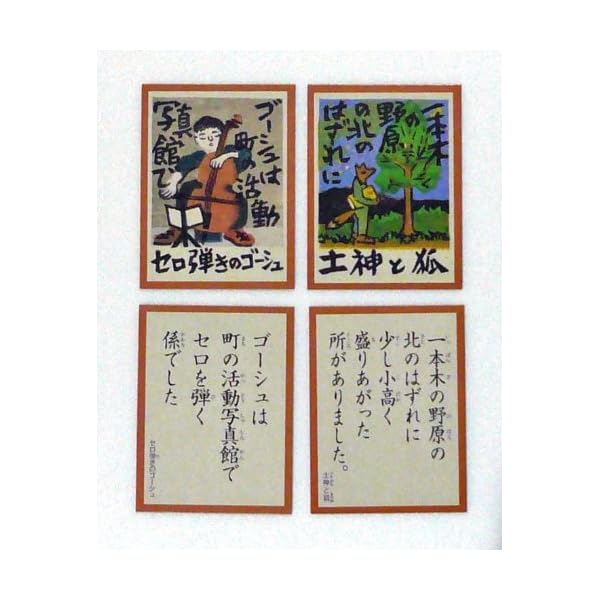 ゴーシュは
町の活動
写真館で
セロ弾きのゴーシュ
一本木
の野原
の北の
はずれに
土神と狐
ゴーシュは
町の活動写真館で
セロを弾く
係でした
セロ弾きのゴーシュ
一本木の野原の
北のはずれに
少し小高く
盛りあがった
所がありました。
土神と狐